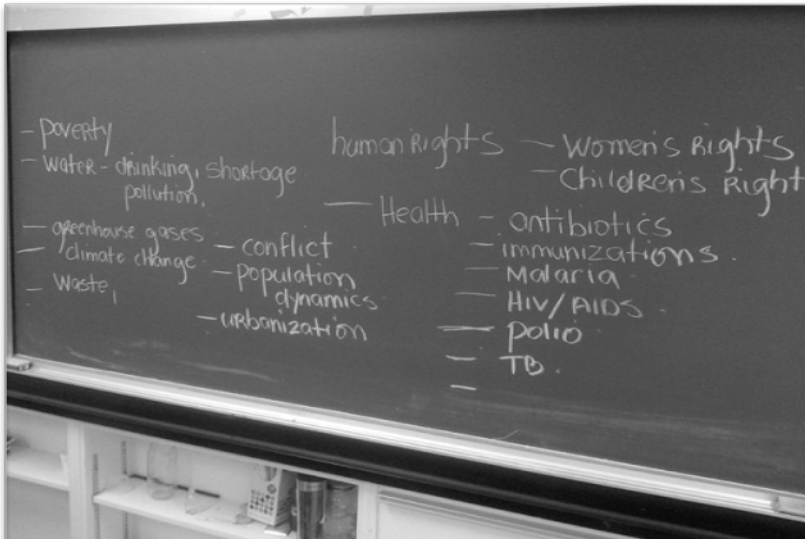 - poverty
- water - drinking, shortage
pollution,
- greenhouse gases
- climate change
- waste,
- conflict
- population
dynamics
- urbanization
human Rights - Women's Rights
- Children's Right
- Health - antibiotics
- immunizations.
- Malaria
- HIV/AIDS
- polio
- TB.
-